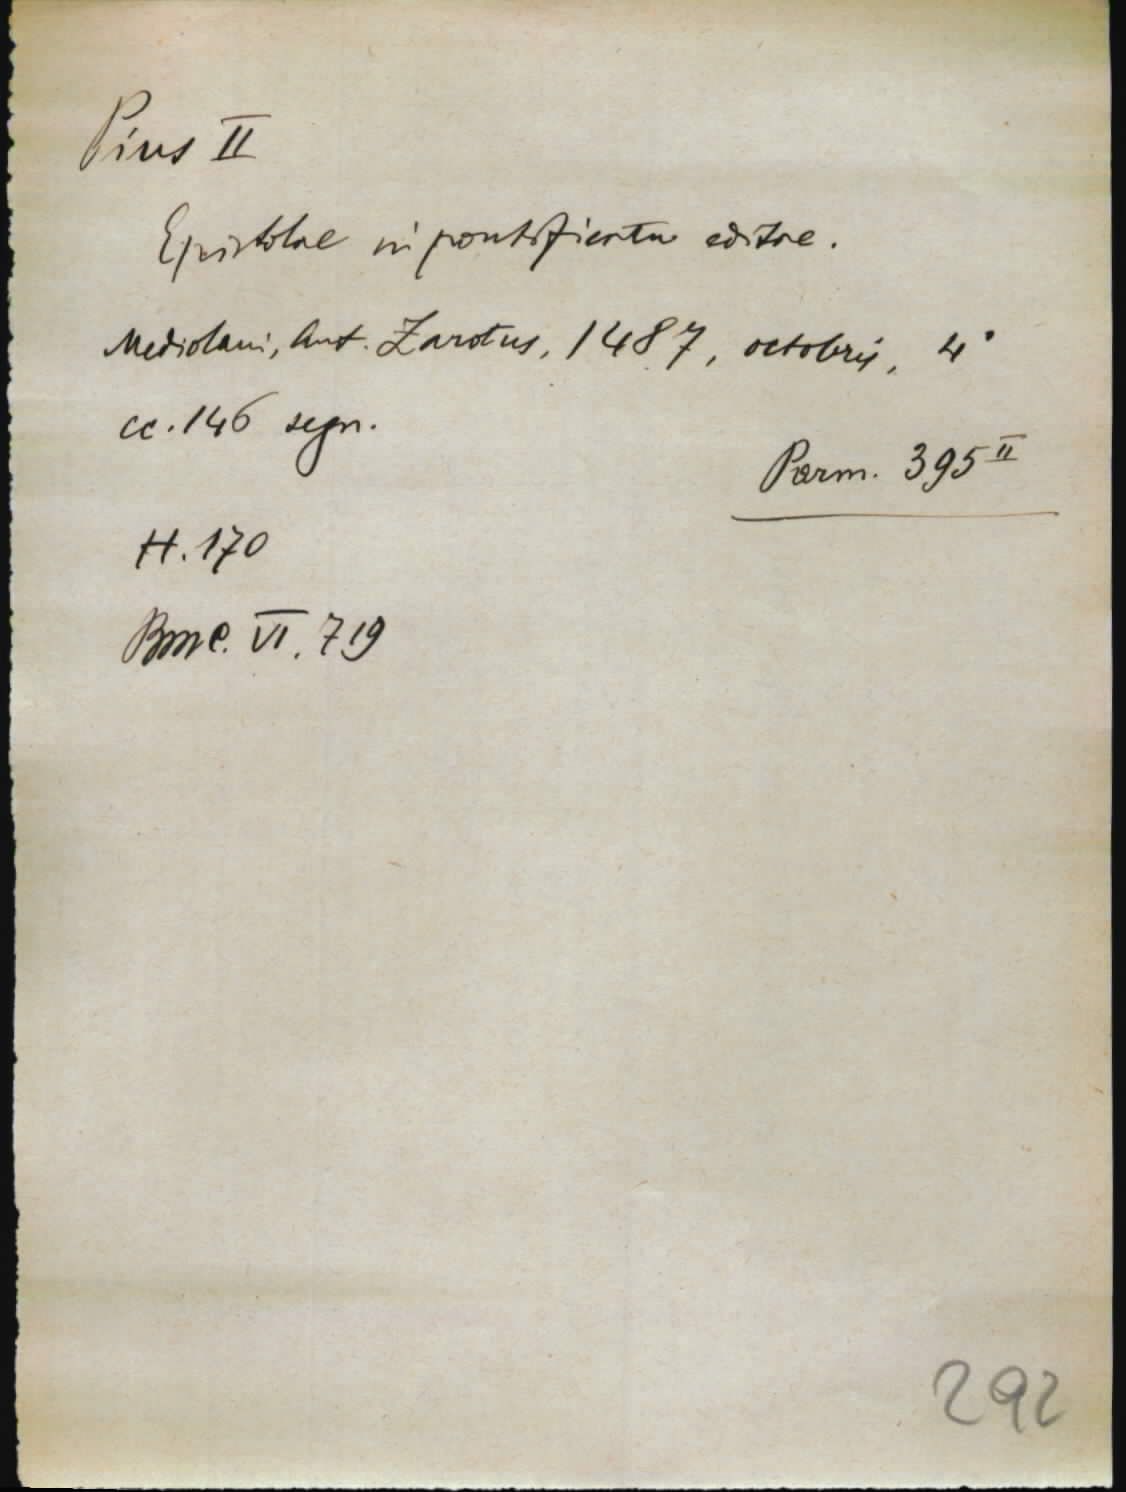 Pius II
Epistolae in pontificatu editae.
Mediolani, Ant. Zarotus, 1487, octobris, 4°
cc. 146 segn.
Parm. 395 II
H. 170
BMC. VI. 719
292